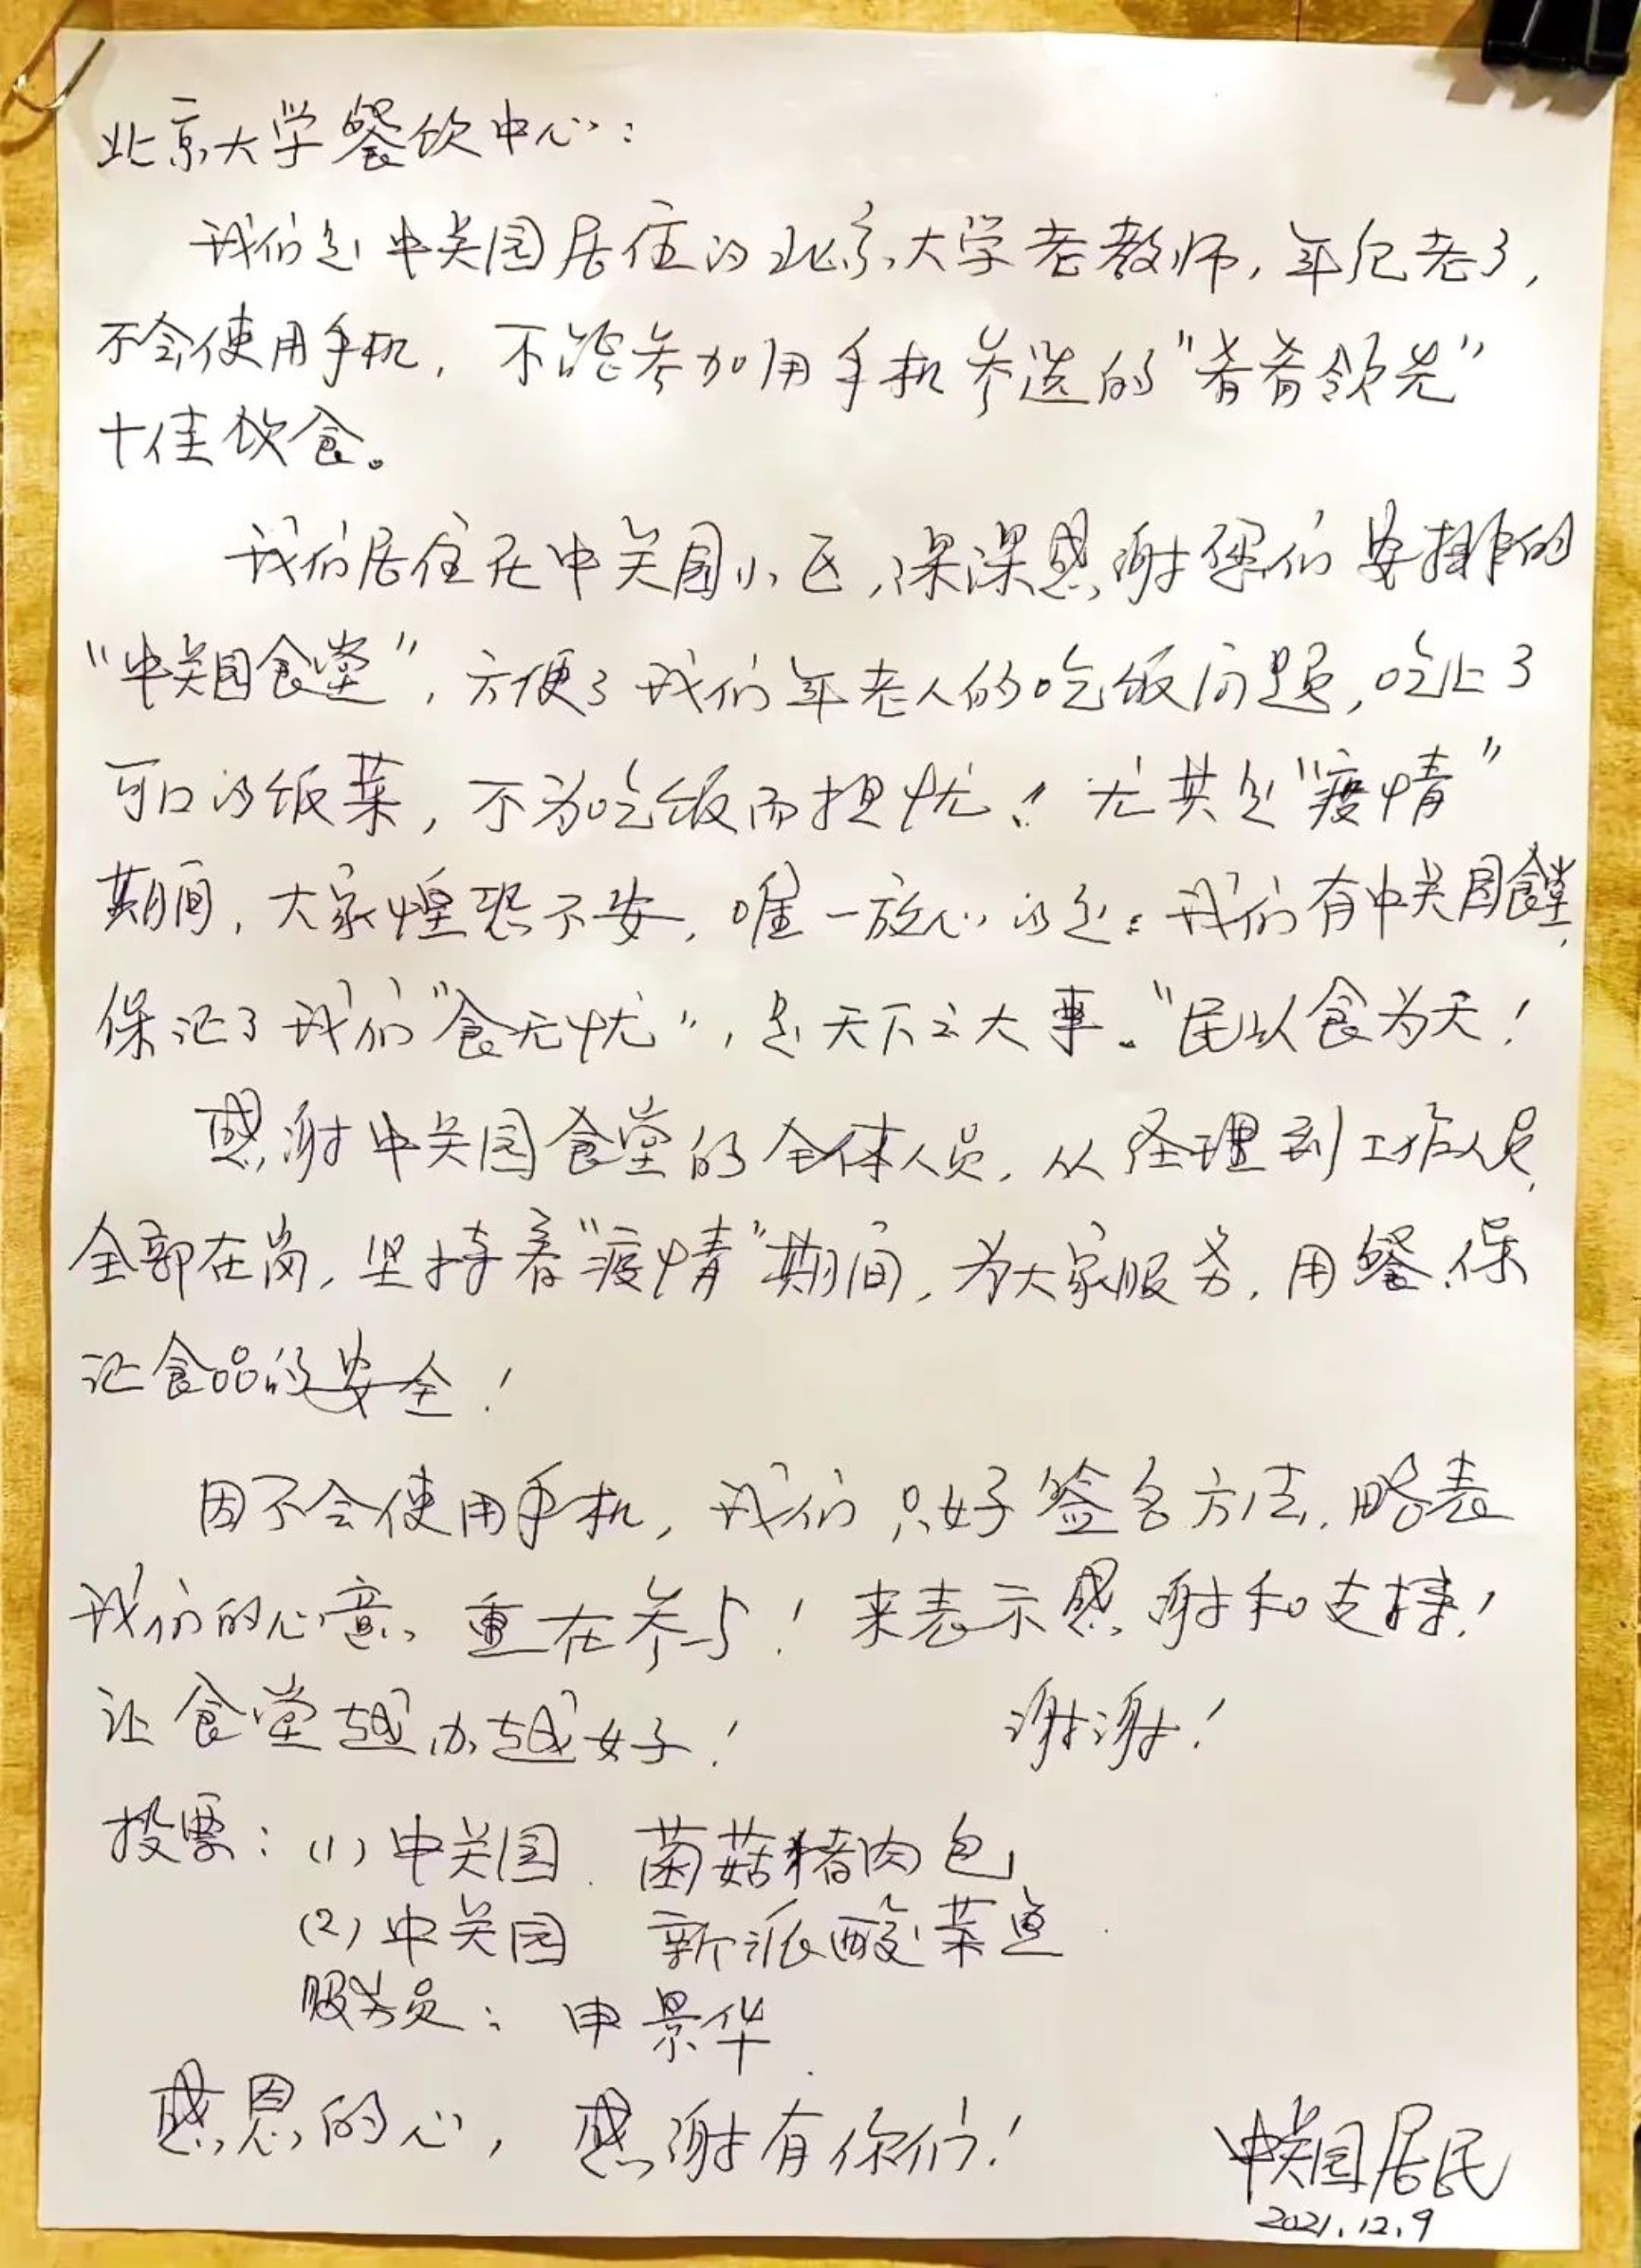 北京大学餐饮中心：
我们是中关园居住的北京大学老教师，年纪老了，
不会使用手机，不能参加用手机参选的“肴肴领先”
十佳饮食。
我们居住在中关园小区，深深感谢您们安排的
“中关园食堂”，方便了我们年老人的吃饭问题，吃上了
可口的饭菜，不为吃饭而担忧！尤其是“疫情”
期间，大家惶恐不安，唯一放心的是：我们有中关园食堂，
保证了我们“食无忧”，是天下之大事。“民以食为天！
感谢中关园食堂的全体人员，从经理到工作人员，
全部在岗，坚持着“疫情”期间，为大家服务，用餐，保
证食品的安全！
因不会使用手机，我们只好签名方法，略表
我们的心意，重在参与！来表示感谢和支持！
让食堂越办越好！ 谢谢！
投票：（1）中关园 菌菇猪肉包
（2）中关园 新派酸菜鱼
服务员：申景华
感恩的心，感谢有你们！
中关园居民
2021.12.9